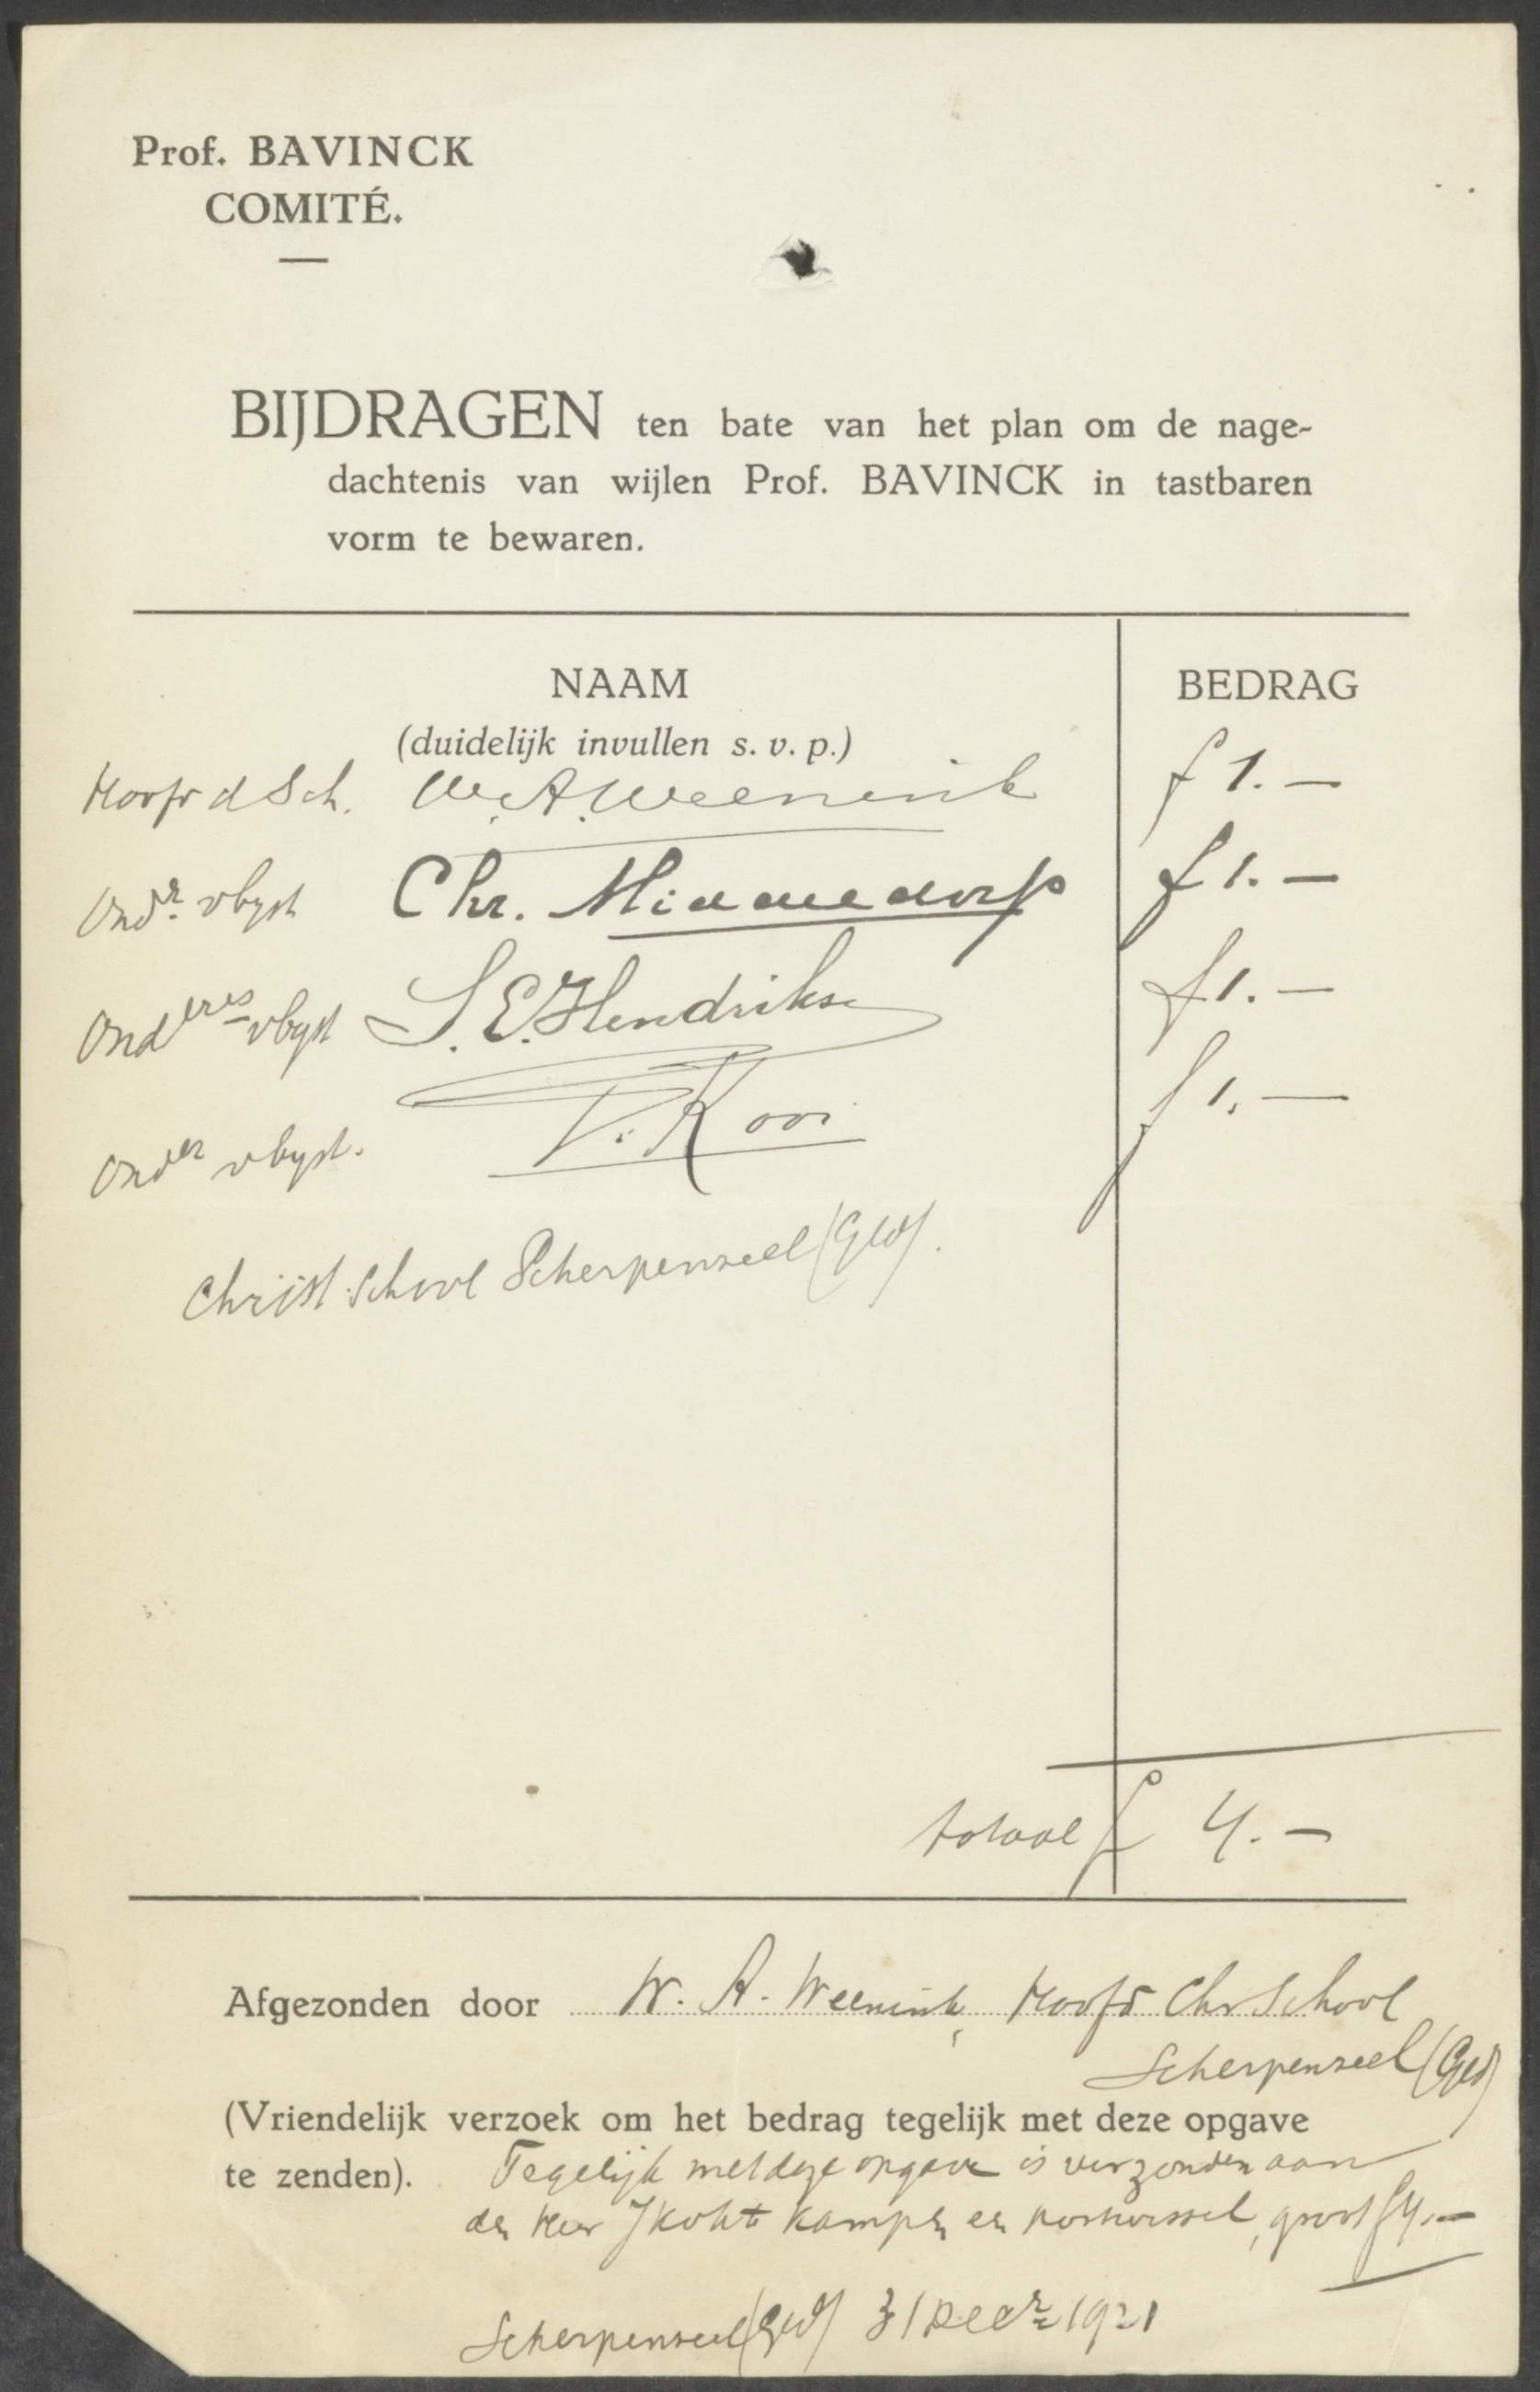 Prof. BAVINCK
COMITÉ.
BIJDRAGEN ten bate van het plan om de nage-
dachtenis van wijlen Prof. BAVINCK in tastbaren
vorm te bewaren.
NAAM BEDRAG
(duidelijk invullen s. v. p.)
Hoofd d Sch. W. A. Weenink f 1.—
Ondr. vbyst Chr. f 1.—
Onderes vbyst S. E. Hendrikse f 1.—
Onder vbyst. Kooi f 1.—
Christ. School Scherpenzeel (Gld).
totaal f 4.—
Afgezonden door W. A. Weenink, Hoofd Chr School
Scherpenzeel (Gld)
(Vriendelijk verzoek om het bedrag tegelijk met deze opgave
te zenden). Tegelijk met deze opgave is verzonden aan
den Heer J Koht Kampen en postwissel, groot f 4.—
Scherpenzeel (Gld) 31 Decr 1921